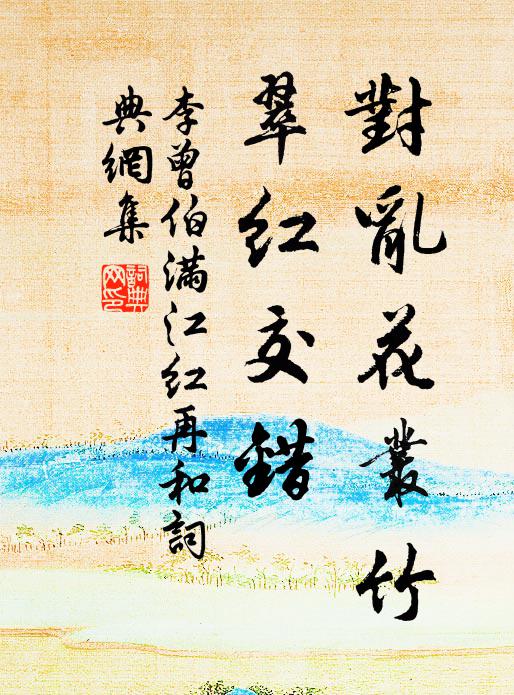 對亂花叢竹
翠紅交錯
李曾伯滿江紅再和詞
典網集
詞典網印